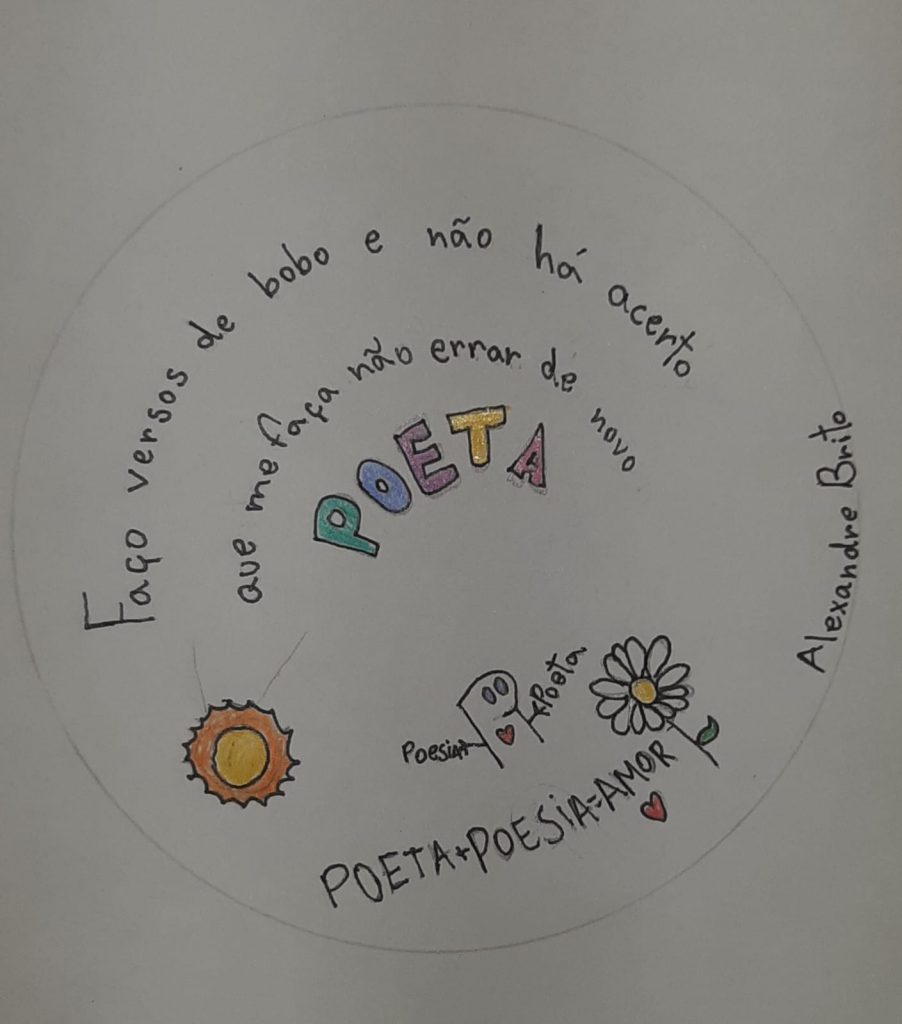 Faço versos de bobo e não há acerto
que me faça não errar de novo
POETA
Alexandre Brito
Poesia
Poeta
POETA+POESiA=AMOR